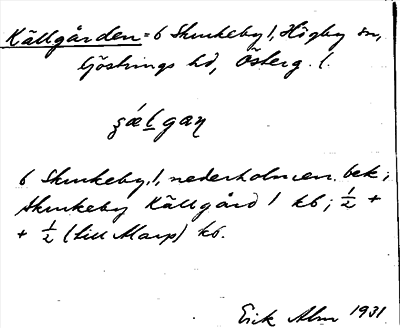 Källgården = 6 Skrukeby 1, Högby sn,
Göstrings hd, Österg. l.
6 Skrukeby 1, nederholmen. bek;
Skrukeby Källgård 1 kb; ½ +
+ ½ (till Marp) kb.
Erik Alm 1931